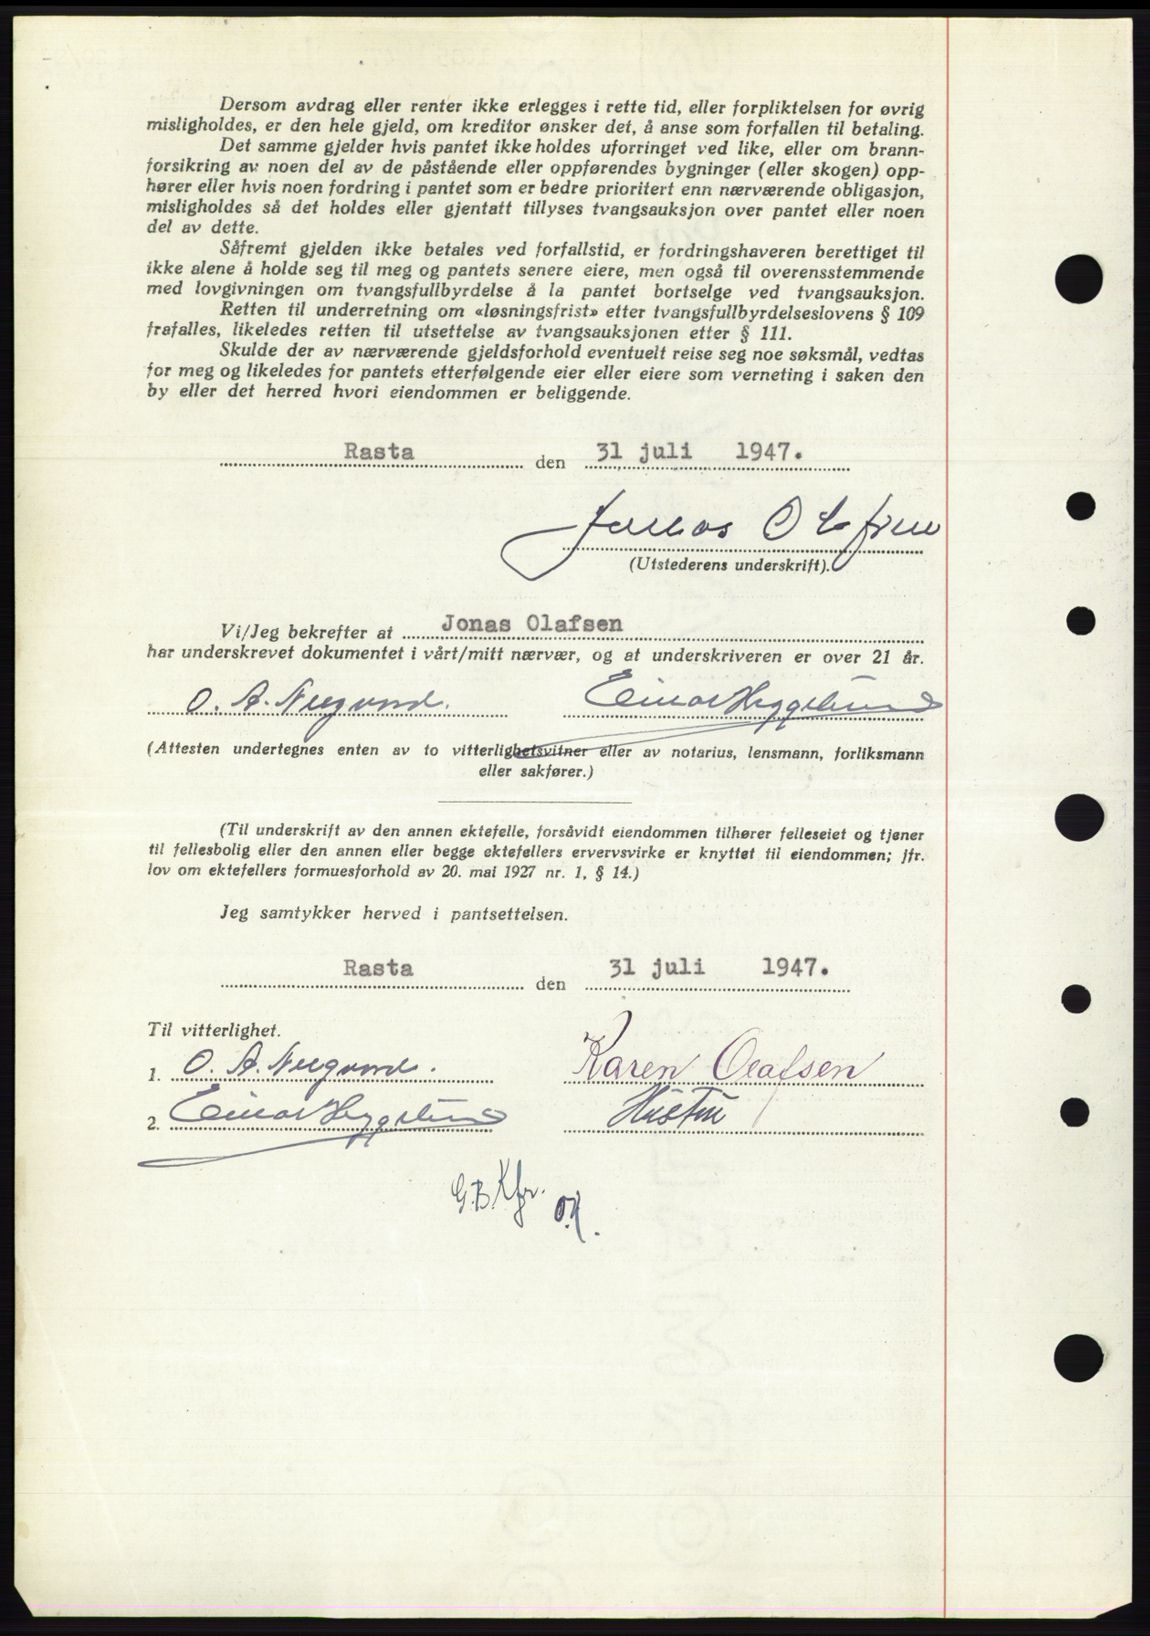 Dersom avdrag eller renter ikke erlegges i rette tid, eller forpliktelsen for øvrig
misligholdes, er den hele gjeld, om kreditor ønsker det, å anse som forfallen til betaling.
Det samme gjelder hvis pantet ikke holdes uforringet ved like, eller om brann-
forsikring av noen del av de påstående eller oppførendes bygninger (eller skogen) opp-
hører eller hvis noen fordring i pantet som er bedre prioritert enn nærværende obligasjon,
misligholdes så det holdes eller gjentatt tillyses tvangsauksjon over pantet eller noen
del av dette.
Såfremt gjelden ikke betales ved forfallstid, er fordringshaveren berettiget til
ikke alene å holde seg til meg og pantets senere eiere, men også til overensstemmende
med lovgivningen om tvangsfullbyrdelse å la pantet bortselge ved tvangsauksjon.
Retten til underretning om «løsningsfrist» etter tvangsfullbyrdelseslovens § 109
frafalles, likeledes retten til utsettelse av tvangsauksjonen etter § 111.
Skulde der av nærværende gjeldsforhold eventuelt reise seg noe søksmål, vedtas
for meg og likeledes for pantets etterfølgende eier eller eiere som verneting i saken den
by eller det herred hvori eiendommen er beliggende.
Rasta den 31 juli 1947.
Jonas Olafsen
(Utstederens underskrift).
Vi/Jeg bekrefter at Jonas Olafsen
har underskrevet dokumentet i vårt/mitt nærvær, og at underskriveren er over 21 år.
O. A. Einar
(Attesten undertegnes enten av to vitterlighetsvitner eller av notarius, lensmann, forliksmann
eller sakfører.)
(Til underskrift av den annen ektefelle, forsåvidt eiendommen tilhører felleseiet og tjener
til fellesbolig eller den annen eller begge ektefellers ervervsvirke er knyttet til eiendommen; jfr.
lov om ektefellers formuesforhold av 20. mai 1927 nr. 1, § 14.)
Jeg samtykker herved i pantsettelsen.
Rasta den 31 juli 1947.
Til vitterlighet.
1. O. A. Karen Olafsen
2. Einar Hustru
G.B. Kfr.